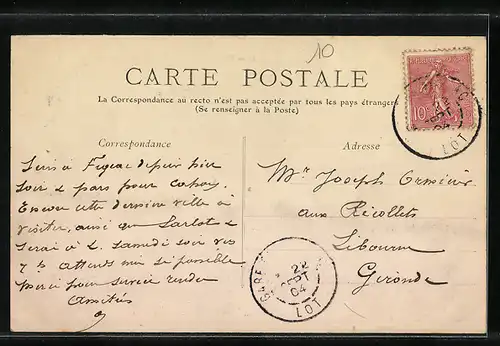 10
CARTE POSTALE
La Correspondance au recto n'est pas acceptée par tous les pays étrangers
(Se renseigner à la Poste)
Correspondance
Adresse
Suis à Figeac depuis hier
soir & pars pour
Encore cette dernière ville à
visiter, ainsi que Sarlat &
serai à L. Samedi soir vers
7 h attends moi si possible
Merci pour
Amitiés
Mr Joseph
aux Récollets
Libourne
Gironde
10
LOT
GARE
22
SEPT
04
LOT